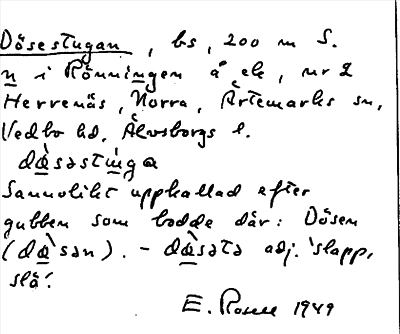 Dösestugan, bs, 200 m S.
n i Rönningen å ek, nr 2
Herrenäs, Norra, Ärtemarks sn,
Vedbo hd, Älvsborgs l.
dǿsəstuga
Sannolikt uppkallad efter
gubben som bodde där: Dösen
(dǿsən). – dǿsətə adj. 'slapp,
slö'.
E. Rosell 1949